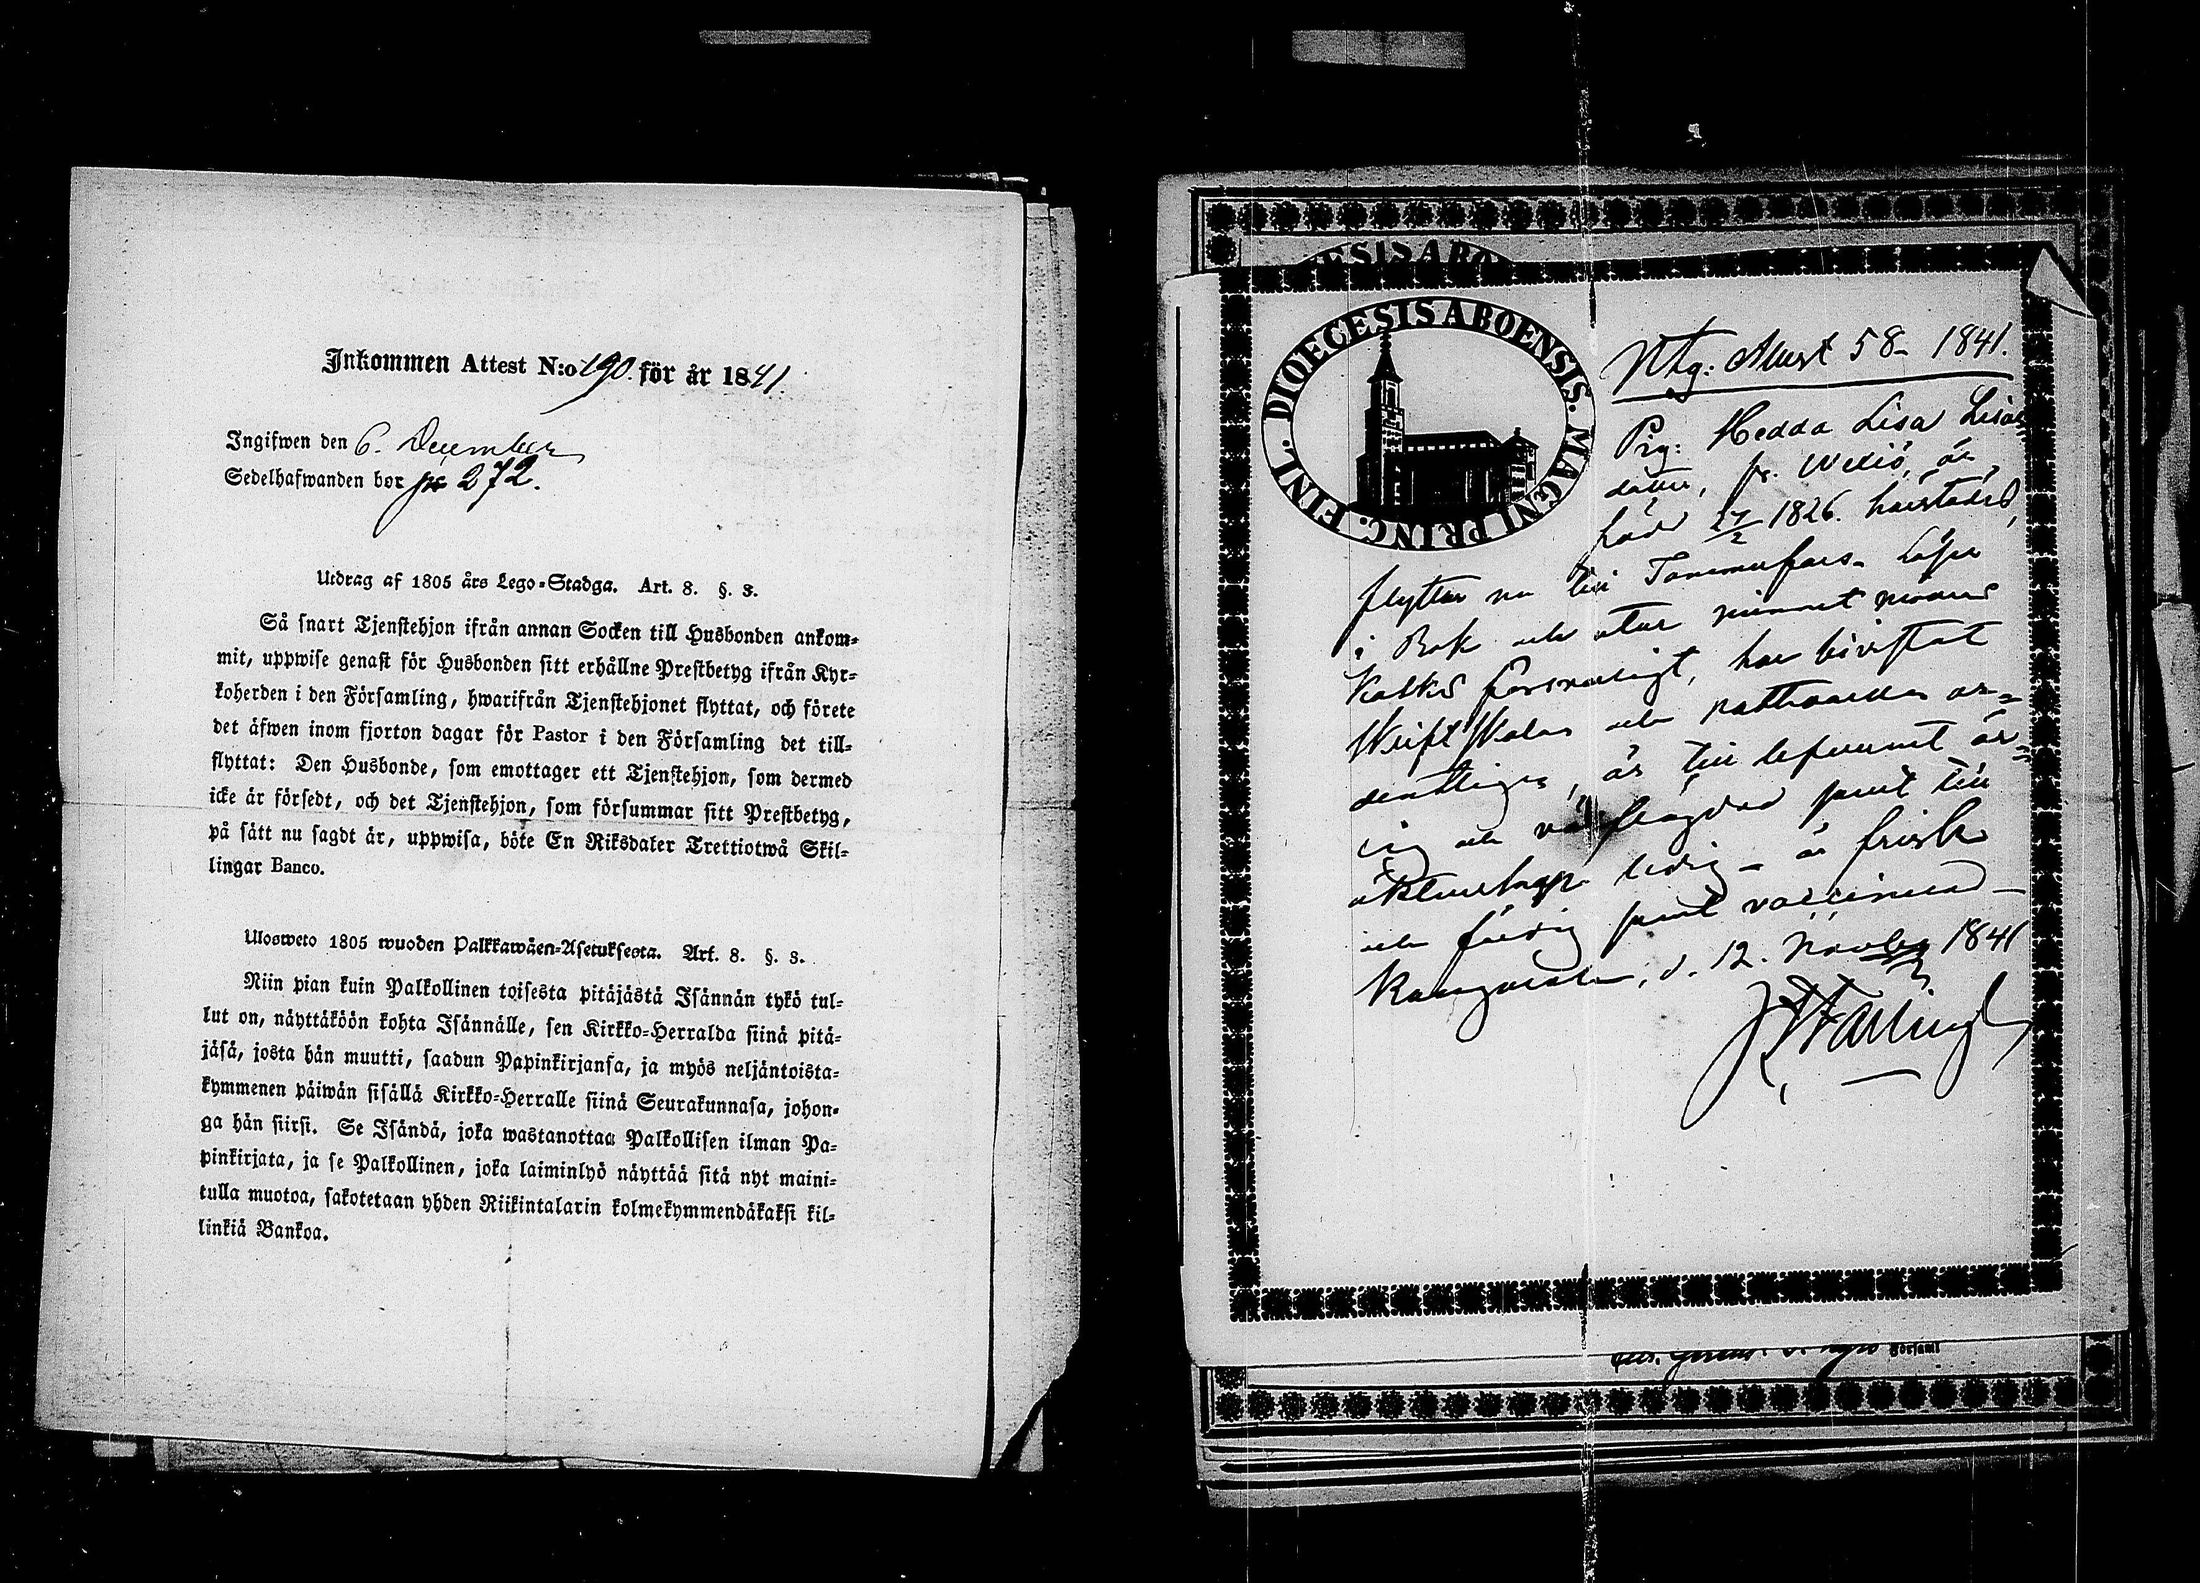 Inkommen Attest N:o 190. för år 1841.
Ingifwen den 6. December
Sedelhafwanden bor på 272.
Utdrag af 1805 års Lego-Stadga. Art. 8. §. 3.
Så snart Tjenstehjon ifrån annan Socken till Husbonden ankom-
mit, uppwise genast för Husbonden sitt erhållne Prestbetyg ifrån Kyr-
koherden i den Församling, hwarifrån Tjenstehjonet flyttat, och förete
det äfwen inom fjorton dagar för Pastor i den Församling det till-
flyttat: Den Husbonde, som emottager ett Tjenstehjon, som dermed
icke är försedt, och det Tjenstehjon, som försummar sitt Prestbetyg,
på sätt nu sagdt är, uppwisa, böte En Riksdaler Trettiotwå Skil-
lingar Banco.
Ulosweto 1805 wuoden Palkkawäen-Asetuksesta. Art. 8. §. 3.
Niin pian kuin Palkollinen toisesta pitäjästä Isännän tykö tul-
lut on, näyttäköön kohta Isännälle, sen Kirkko-Herralda siinä pitä-
jäsä, josta hän muutti, saadun Papinkirjansa, ja myös neljäntoista-
kymmenen päiwän sisällä Kirkko-Herralle siinä Seurakunnasa, johon-
ga hän siirsi. Se Isändä, joka wastanottaa Palkollisen ilman Pa-
pinkirjata, ja se Palkollinen, joka laiminlyö näyttää sitä nyt maini-
tulla muotoa, sakotetaan yhden Riikintalarin kolmekymmendäkaksi kil-
linkiä Bankoa.
DIOECESIS ABO
DIOECESIS ABOENSIS. MAGNI PRINC. FINL.
Utg: Attest 58- 1841.
Pig: Hedda Lisa Lisas
dotter, fr. är
född 27/2 1826. härstädes,
flyttar nu till Tammerfors. Läser
i Bok och utur minnet
försvarligt, har bivistat
Skriftskolan och nattvarden or-
dentligen, är till lefvernet är-
lig och samt till
äktenskap ledig - är frisk
och färdig samt vaccinerad -
d. 12. November 1841
Församl